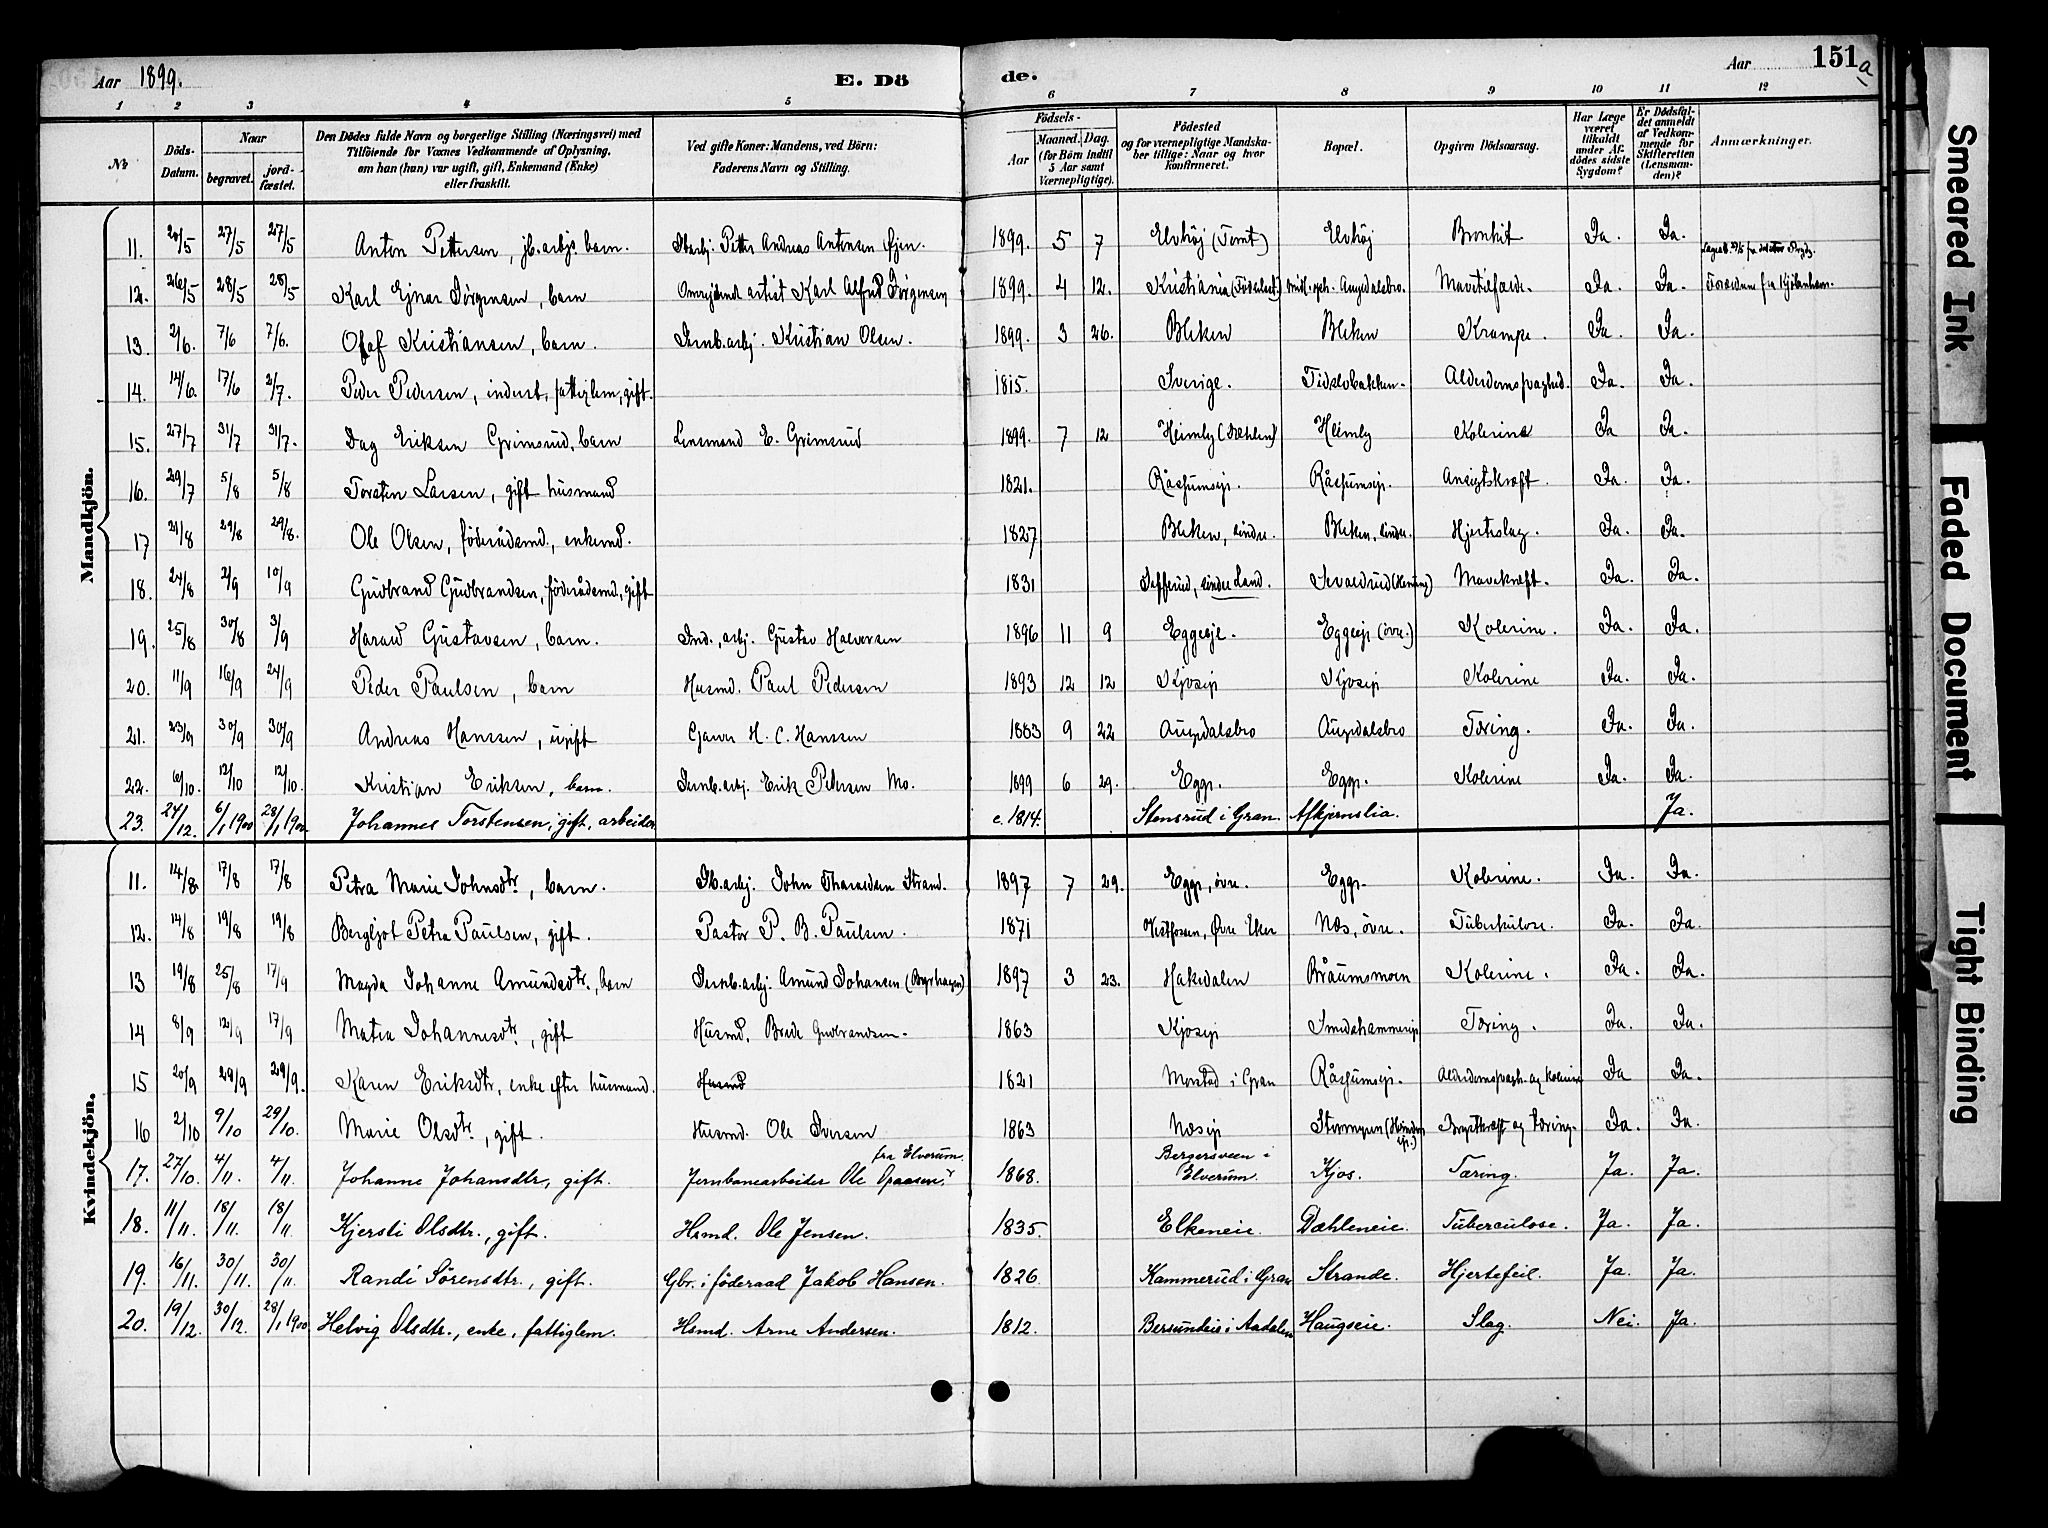 Aar 1899. E. Dö de. Aar 151 a
1 2 3 4 5 6 7 8 9 10 11 12
№ Döds-Datum. Naar begravet. jordfæstet. Den Dödes fulde Navn og borgerlige Stilling (Næringsvei) med Tilföiende for Voxnes Vedkommende af Oplysning, om han (hun) var ugift, gift, Enkemand (Enke) eller fraskilt. Ved gifte Koner: Mandens, ved Börn: Faderens Navn og Stilling. Födsels- Aar Maaned. Dag. (for Börn indtil 5 Aar samt Værnepligtige). Födested og for værnepligtige Mandskaber tillige: Naar og hvor konfirmeret. Bopæl. Opgiven Dödsaarsag. Har Læge været tilkaldt under Afdödes sidste Sygdom? Er Dödsfaldet anmeldt af Vedkommende for Skifteretten (Lensmanden)? Anmærkninger.
Mandkjön.
11. 20/5 27/5 27/5 Anton Pettersen, jb.arbjs barn. Jb.arbj. Petter Andreas Antonsen Øjen. 1899. 5 7 Elvhøj (Tomt) Elvhøj Bronkit Ja. Ja.
12. 26/5 28/5 28/5 Karl Ejnar Jörgensen, barn Omrejsende artist Karl Alfred Jörgensen 1899. 4 12. Kristiania Augedalsbro. Ja. Ja. Forældrene fra Kjöbenhavn.
13. 2/6. 7/6 7/6. Olaf Kristiansen, barn. Jernb.arbj. Kristian Olsen. 1899. 3 26. Bleken Bleken Krampe. Ja. Ja.
14. 14/6. 17/6 2/7. Peder Pedersen, inderst, fattiglem, gift. 1815. Sverige. Tidslobakken. Ja. Ja.
15. 27/7 31/7 31/7. Dag Eriksen Grimsrud, barn Lensmand E. Grimsrud 1899. 7 12 Heimly (Dæhlen) Heimly Kolerine Ja Ja.
16. 29/7 5/8 5/8 Torsten Larsen, gift husmand 1821. Råssumsej. Råssumsej. Ansigtskræft. Ja. Ja.
17 21/8 29/8 29/8. Ole Olsen, föderådsmd., enkemd. 1827 Bleken, söndre. Bleken, söndre. Hjerteslag. Ja. Ja.
18. 24/8 2/9 10/9 Gudbrand Gudbrandsen, föderådsmd., gift 1831 söndre Land. Mavekræft. Ja. Ja.
19. 25/8 30/8 3/9 Harald Gustavsen, barn. Jnd. arbj. Gustav Halvorsen 1896 11 9 Eggesje. Eggesje (övre.) Kolerine. Ja. Ja.
20. 11/9 16/9 24/9 Peder Paulsen, barn Husmd. Paul Pedersen 1893 12 12 Kjosej Kjosej Kolerine Ja. Ja.
21. 23/9 30/9 30/9 Andreas Hanssen, ugift Garver H. C. Hanssen 1883 9 22 Augedalsbro Augedalsbro Tæring. Ja. Ja.
22. 6/10. 12/10 12/10. Kristian Eriksen, barn. Jernb.arbj. Erik Petersen Mo. 1899 6 29. Egge. Egge. Kolerine Ja. Ja.
23. 27/12. 6/1 1900 28/1 1900. Johannes Torstensen, gift, arbeider c. 1814. Stensrud i Gran. Afkjernslia. Ja.
Kvindekjön.
11. 14/8. 17/8 17/8 Petra Marie Johnsdtr, barn. Jb.arbj. John Tharaldsen Strand. 1897 7 29. Egge, övre. Egge. Kolerine. Ja. Ja.
12. 14/8 19/8 19/8 Bergljot Petra Paulsen, gift. Pastor P. B. Paulsen. 1871 Vestfossen, Øvre Eker Næs, övre. Tuberkulose. Ja. Ja.
13 19/8 25/8 17/9 Magda Johanne Amundsdtr., barn Jernb.arbj. Amund Johansen 1897 3 23. Hakedalen Bråumsmoen Kolerine. Ja. Ja.
14 8/9 12/9 17/9 Matea Johannesdtr., gift Husmd. Brede Gudbrandsen. 1863 Kjosej Smedshammerej Tæring. Ja. Ja.
15 20/9 29/9 29/9. Karen Eriksdtr, enke efter husmand. Husmd 1821 Morstad i Gran Råssumsej. Alderdomssvagh. og Kolerine Ja Ja.
16 2/10 9/10 29/10. Marie Olsdtr., gift. Husmd. Ole Iversen 1863 Næsej Brystkræft og tæring. Ja. Ja.
17. 27/10. 4/11. 4/11. Johanne Johansdtr, gift. Jernbanearbeider Ole Opaasen, fra Elverum. 1868. Bergersveen i Elverum. Kjos. Tæring. Ja. Ja.
18. 11/11. 18/11. 18/11. Kjersti Olsdtr., gift. Hsmd. Ole Jensen. 1835. Elkeneie. Dæhleneie. Tuberculose. Ja. Ja.
19. 16/11. 30/11. 30/11. Randi Sörensdtr., gift. Gbr. i föderaad Jakob Hansen. 1826. Kammerud i Gran Strande. Hjertefeil. Ja. Ja.
20. 19/12. 30/12. 28/1 1900 Helvig Olsdtr., enke, fattiglem. Hsmd. Arne Andersen. 1812. Bersundeie i Aadalen Haugseie. Slag. Nei. Ja.
Smeared Ink
Faded Document
Tight Binding